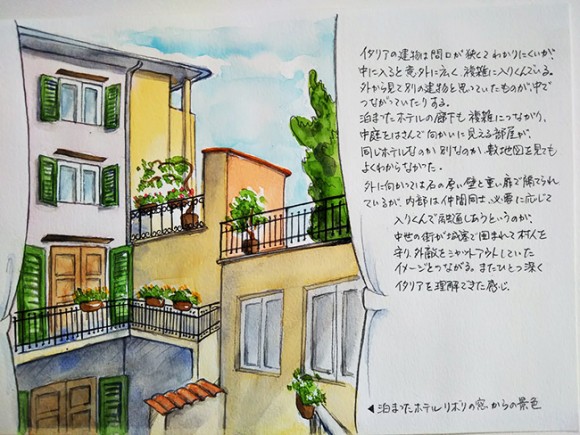 イタリアの建物は間口が狭くてわかりにくいが、
中に入ると意外に広く、複雑に入りくんでいる。
外から見て別の建物と思っていたものが、中で
つながっていたりする。
泊まったホテルの廊下も複雑につながり、
中庭をはさんで向かいに見える部屋が、
同じホテルなのか別なのか、敷地図を見ても
よくわからなかった。
外に向かっては石の厚い壁と重い扉で隔てられ
ているが、内部は仲間同士、必要に応じて
入りくんで融通しあうというのか、
中世の街が城塞で囲まれて村人を
守り、外敵をシャットアウトしていた
イメージとつながる。またひとつ深く
イタリアを理解できた感じ。
◀泊まったホテルリボリの窓からの景色